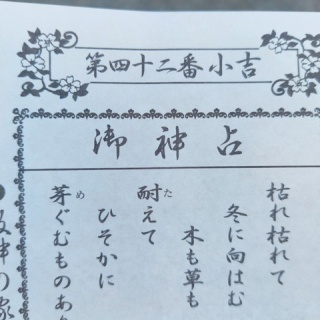 第四十二番 小吉
御神占
枯れ枯れて
冬に向はむ
木も草も
耐えて
ひそかに
芽ぐむものあり